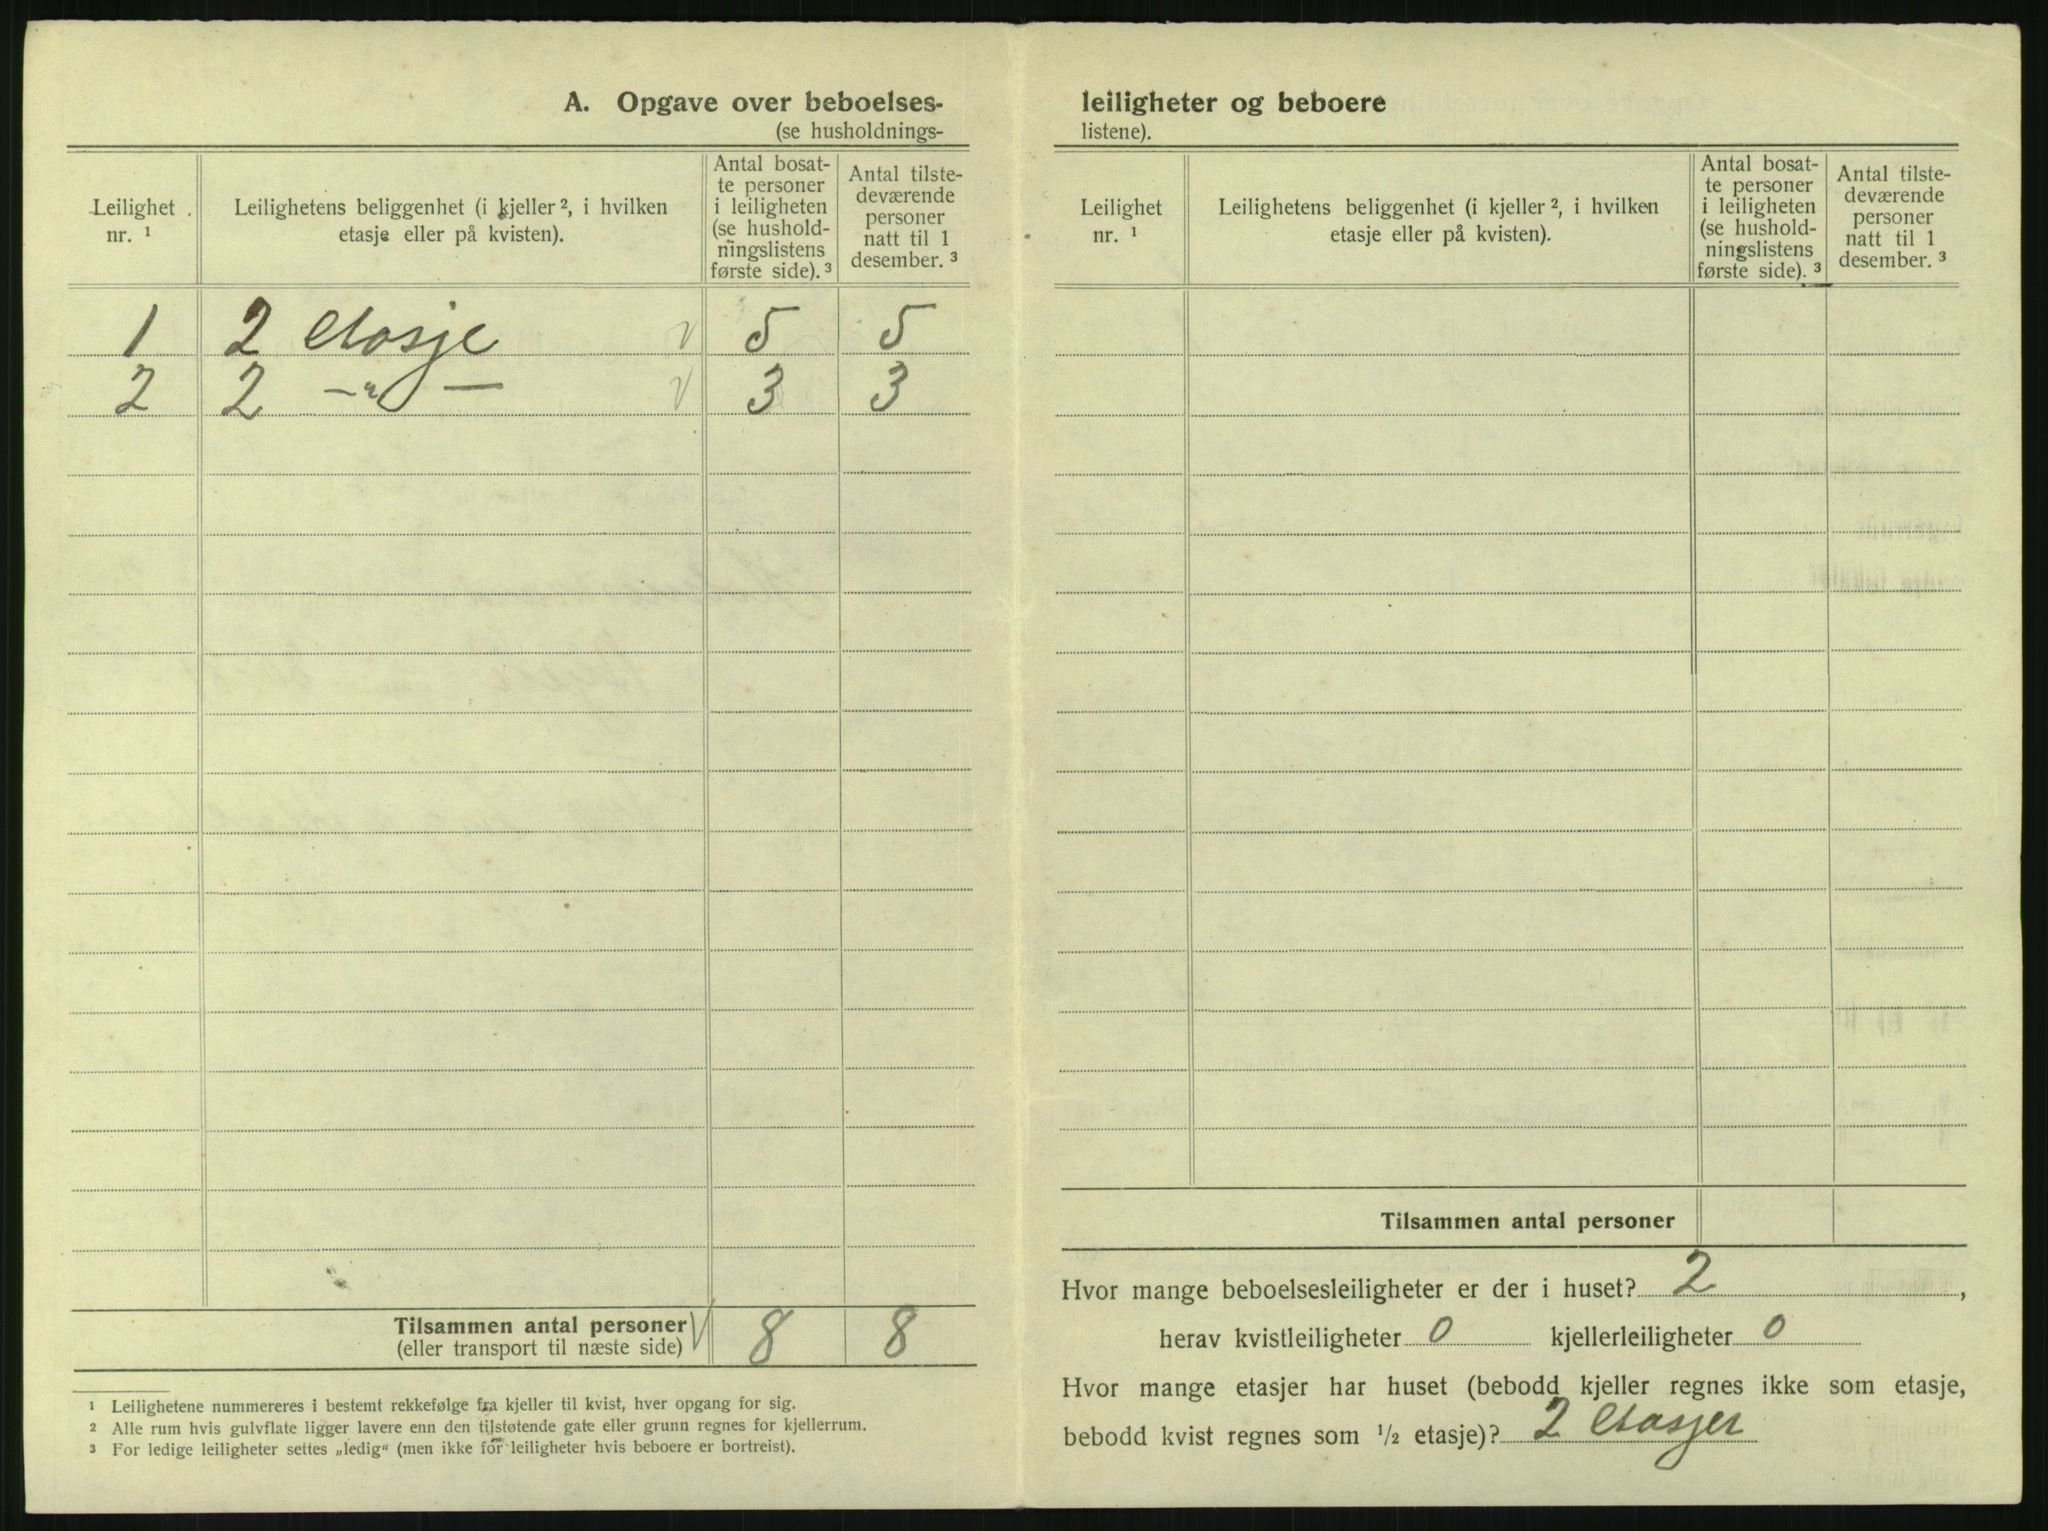 A. Opgave over beboelses-
(se husholdnings-
Leilighet nr. ¹
Leilighetens beliggenhet (i kjeller ², i hvilken
etasje eller på kvisten).
Antal bosat-
te personer
i leiligheten
(se hushold-
ningslistens
første side). ³
Antal tilste-
deværende
personer
natt til 1
desember. ³
1 2 etasje 5 5
2 2 —„— 3 3
Tilsammen antal personer 8 8
(eller transport til næste side)
¹ Leilighetene nummereres i bestemt rekkefølge fra kjeller til kvist, hver opgang for sig.
² Alle rum hvis gulvflate ligger lavere enn den tilstøtende gate eller grunn regnes for kjellerrum.
³ For ledige leiligheter settes „ledig“ (men ikke for leiligheter hvis beboere er bortreist).
leiligheter og beboere
listene).
Leilighet
nr. ¹
Leilighetens beliggenhet (i kjeller ², i hvilken
etasje eller på kvisten).
Antal bosat-
te personer
i leiligheten
(se hushold-
ningslistens
første side). ³
Antal tilste-
deværende
personer
natt til 1
desember. ³
Tilsammen antal personer
Hvor mange beboelsesleiligheter er der i huset? 2,
herav kvistleiligheter 0 kjellerleiligheter 0
Hvor mange etasjer har huset (bebodd kjeller regnes ikke som etasje,
bebodd kvist regnes som ½ etasje)? 2 etasjer